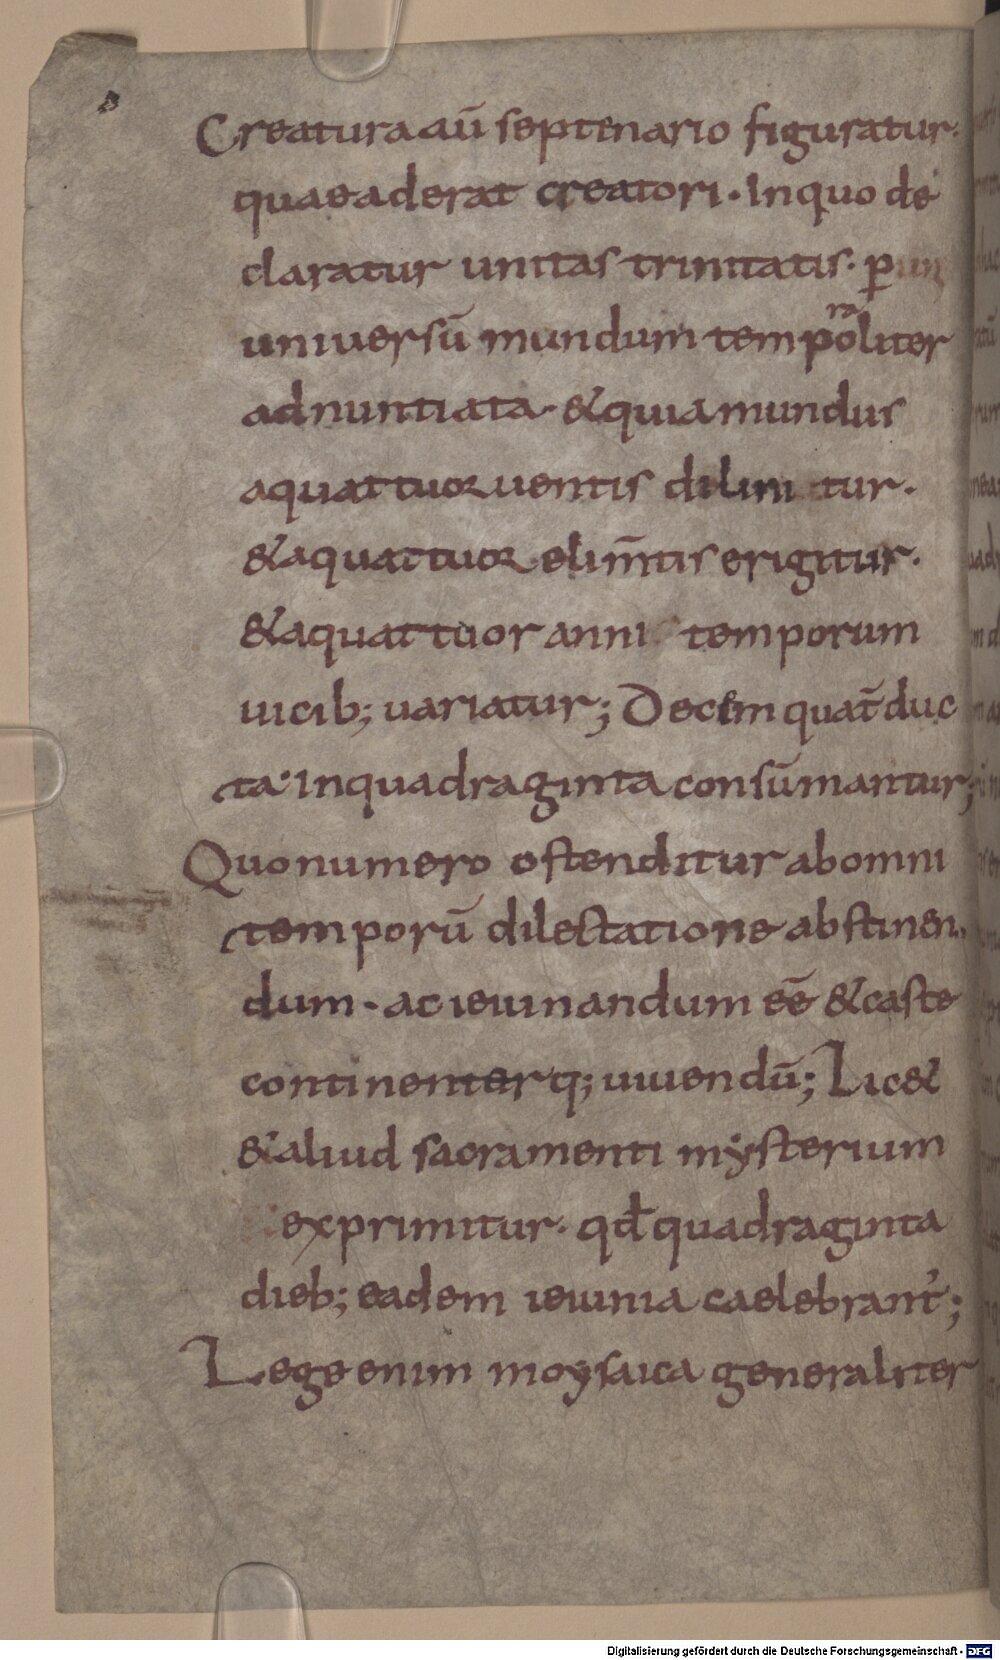 Creatura aū septenario figuratur.
quae aderat creatori. In quo de
claratur unitas trinitatis. ꝑ un
universū mundum tempraoliter
adnuntiata. & quia mundus
a quattuor uentis dilini tur.
& a quattuor elim̄tis erigitur.
& a quattuor anni temporum
uicib; uariatur; Decem quat̄ duc
ta. In quadraginta consūmantur;
Quo numero ostenditur ab omni
temporū dilectatione abstinen
dum. ac ieiunandum eē & caste
continenterq; uiuendū; Lic&
& aliud sacramenti mẏsterium
exprimitur. qđ quadraginta
dieb; eadem ieiunia caelebrant̓;
Lege enim moysaica generaliter
Digitalisierung gefördert durch die Deutsche Forschungsgemeinschaft - DFG